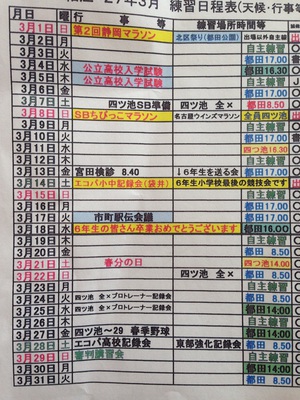 27年3月 練習日程表(天候・行事等
月日 曜 行 事 等 練習場所時間等
3月1日 日 第2回静岡マラソン 北区祭り(都田公園) 出場以外自主練
3月2日 月 自主練習
3月3日 火 都田 17.00
3月4日 水 公立高校入学試験 都田 16.30
3月5日 木 公立高校入学試験 自主練習
3月6日 金 都田 17.00
3月7日 土 四ツ池SB準備 四ツ池 全× 都田 8.50
3月8日 日 SBちびっこマラソン 名古屋ウインズマラソン 全員四ツ池
3月9日 月 自主練習
3月10日 火 都田 17.00
3月11日 水 四つ池16.30
3月12日 木 自主練習
3月13日 金 宮田検診 8.40 ↓6年生を送る会 都田 17.00
3月14日 土 エコパ小中記録会(袋井) 6年生小学校最後の競技会です
3月15日 日 自主練習
3月16日 月 自主練習
3月17日 火 市町駅伝会議 都田 17.00
3月18日 水 6年生の皆さん卒業おめでとうございます 都田 16.00
3月19日 木 自主練習
3月20日 金 都田 8.50
3月21日 土 春分の日 四つ池14.00
3月22日 日 四ツ池 全× 都田 8.50
3月23日 月 自主練習
3月24日 火 四ツ池 全×プロトレーナー記録会 都田 8.50
3月25日 水 四ツ池 全×プロトレーナー記録会 都田 14:00
3月26日 木 自主練習
3月27日 金 四ツ池~29 春季野球 都田 14:00
3月28日 土 エコパ高校記録会 東部強化記録会 都田 8.50
3月29日 日 審判講習会 自主練習
3月30日 月 都田 14:00
3月31日 火 都田 8.50